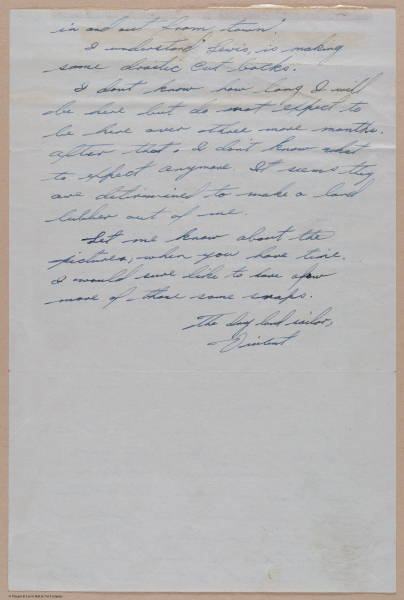 in and out from town.
I understand Lewis, is making
some drastic cut backs.
I dont know how long I will
be here but do not expect to
be here over three more months.
After that, I don't know what
to expect anymore. It seems they
are determined to make a land
lubber out of me.
Let me know about the
pictures, when you have time.
I would sure like to have a few
more of those same snaps.
The dry land sailor,
Vincent